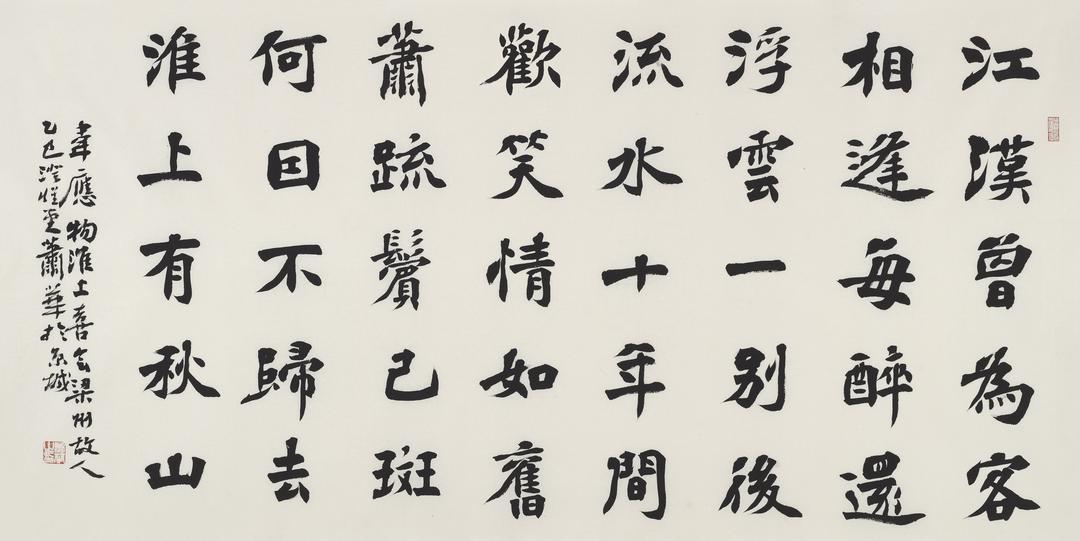 江漢曾為客
相逢每醉還
浮雲一別後
流水十年間
歡笑情如舊
蕭疏鬢已斑
何因不歸去
淮上有秋山
韋應物淮上喜會梁州故人
乙巳澄懷堂蕭華於京城